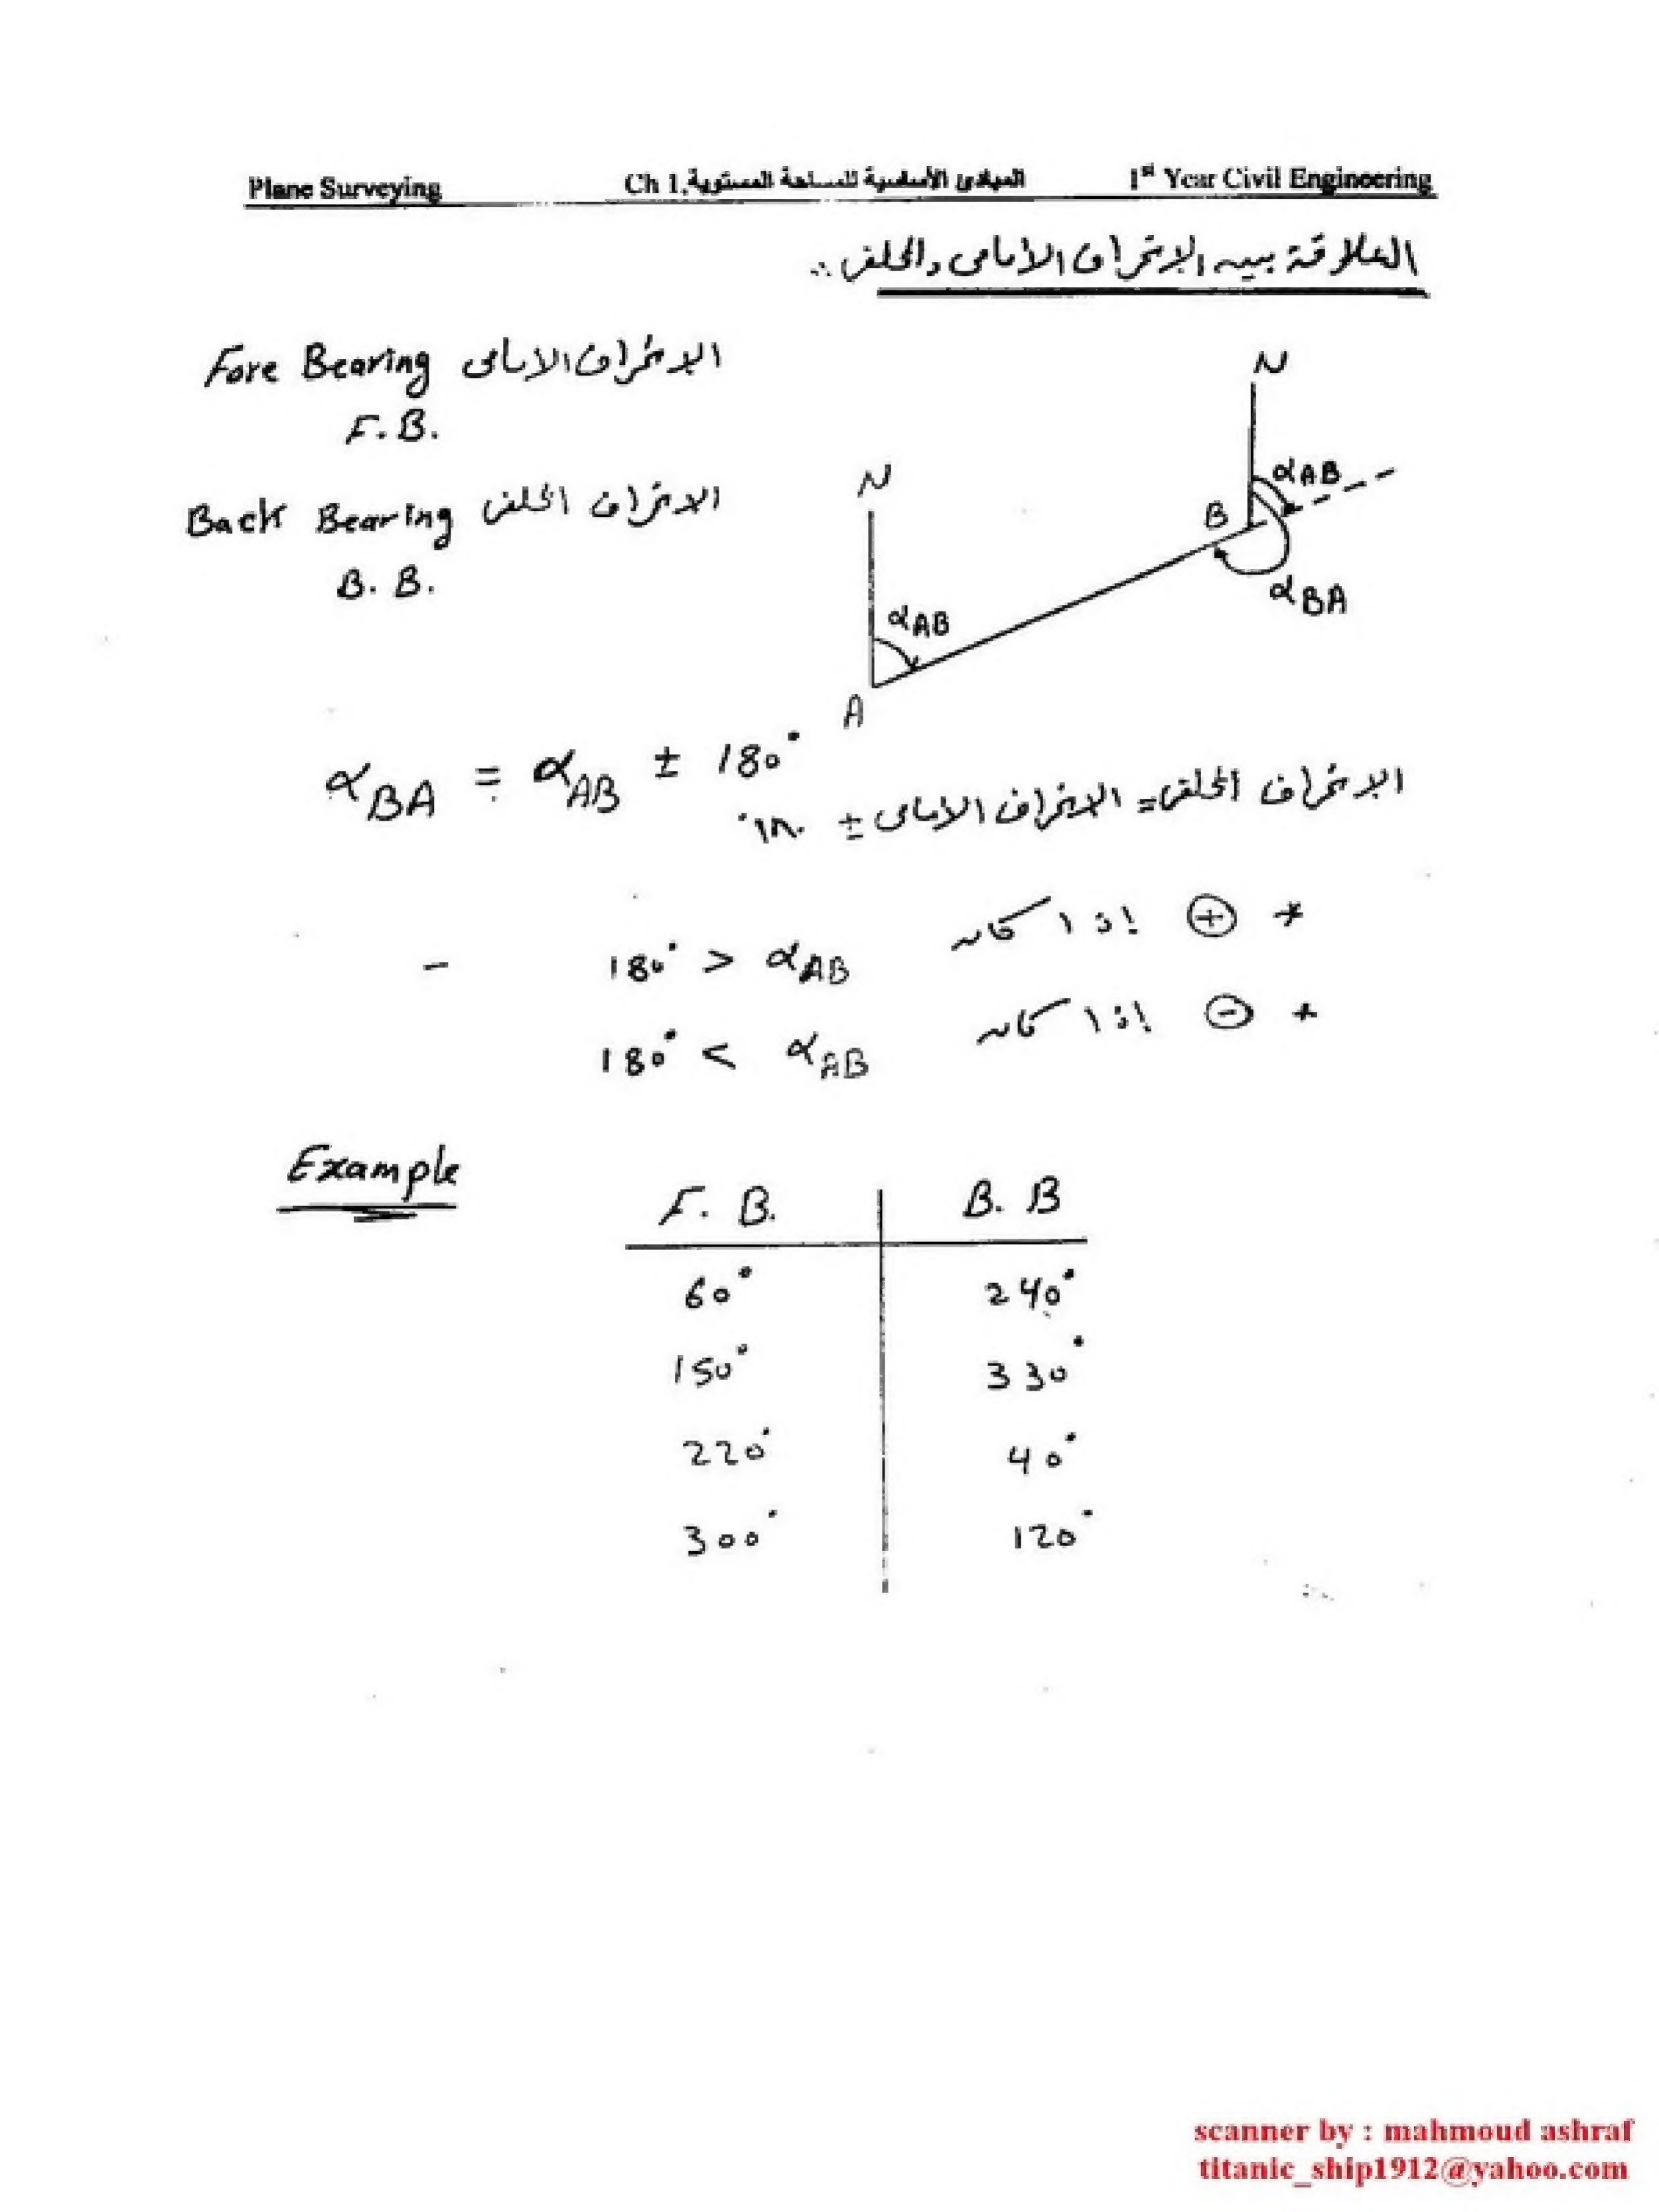 Plane Surveying Ch 1, المبادئ الأساسية للمساحة المستوية 1st Year Civil Engineering
العلاقة بين الانحراف الأمامى والخلفى :-
Fore Bearing الانحراف الامامى
F. B.
Back Bearing الانحراف الخلفى
B. B.
N
N
αAB
B
αBA
αAB
A
αBA = αAB ± 180°
الانحراف الخلفى = الانحراف الامامى ± ١٨٠°
* ⊕ إذا كان 180° > αAB
* ⊖ إذا كان 180° < αAB
Example
F. B. B. B
60° 240°
150° 330°
220° 40°
300° 120°
scanner by : mahmoud ashraf
titanic_ship1912@yahoo.com